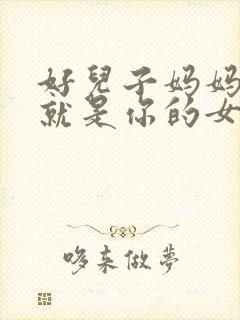 好兒子妈妈
就是你的女
哆来做夢